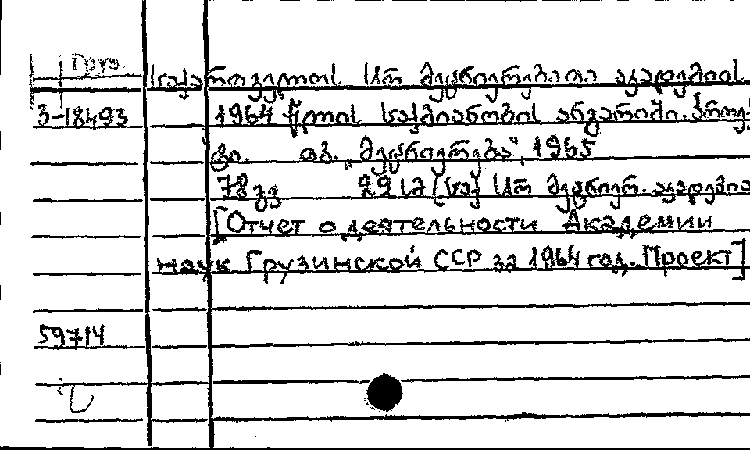 Груз.
საქართველოს სსრ მეცნიერებათა აკადემიის
3-18493 1964 წლის საქმიანობის ანგარიში. პროექ-
ტი. თბ. „მეცნიერება“, 1965
78 გვ 22 სმ [საქ სსრ მეცნიერ. აკადემია
[Отчет о деятельности Академии
наук Грузинской ССР за 1964 год. Проект]
59714